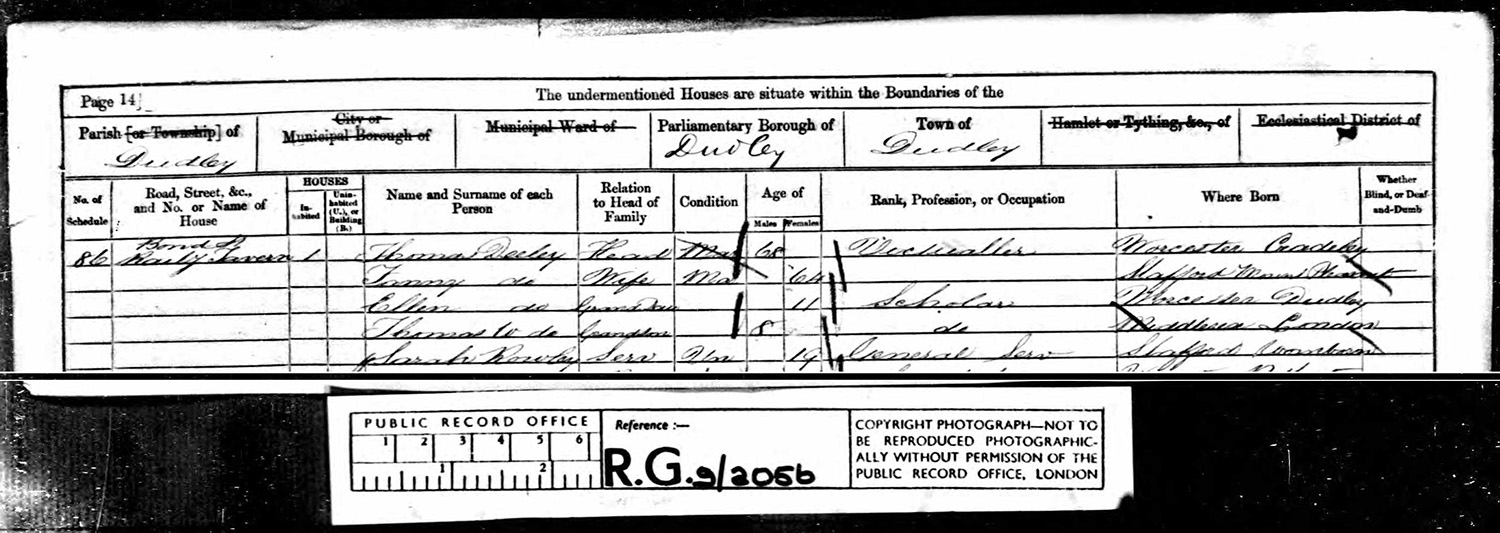 Page 14
The undermentioned Houses are situate within the Boundaries of the
Parish [or Township] of
Dudley
City or
Municipal Borough of
Municipal Ward of
Parliamentary Borough of
Dudley
Town of
Dudley
Hamlet or Tything, &c., of
Ecclesiastical District of
No. of
Schedule
Road, Street, &c.,
and No. or Name of
House
HOUSES
In-
habited
Unin-
habited
(U.), or
Building
(B.)
Name and Surname of each
Person
Relation
to Head of
Family
Condition
Age of
Males
Females
Rank, Profession, or Occupation
Where Born
Whether
Blind, or Deaf-
and-Dumb
Bond St
86 Tavern 1 Thomas Deeley Head Mar 68 Victualler Worcester Cradeley
Fanny do Wife Ma 64 Stafford Mount Pleasant
Ellen do Grandau 11 Scholar Worcester Dudley
Thomas W do Grandson 8 do Middlesex London
Sarah Rowley Serv Un 19 General Serv Stafford
PUBLIC RECORD OFFICE
1 2 3 4 5 6
1 2
Reference :—
R.G. 9/2056
COPYRIGHT PHOTOGRAPH—NOT TO
BE REPRODUCED PHOTOGRAPHIC-
ALLY WITHOUT PERMISSION OF THE
PUBLIC RECORD OFFICE, LONDON